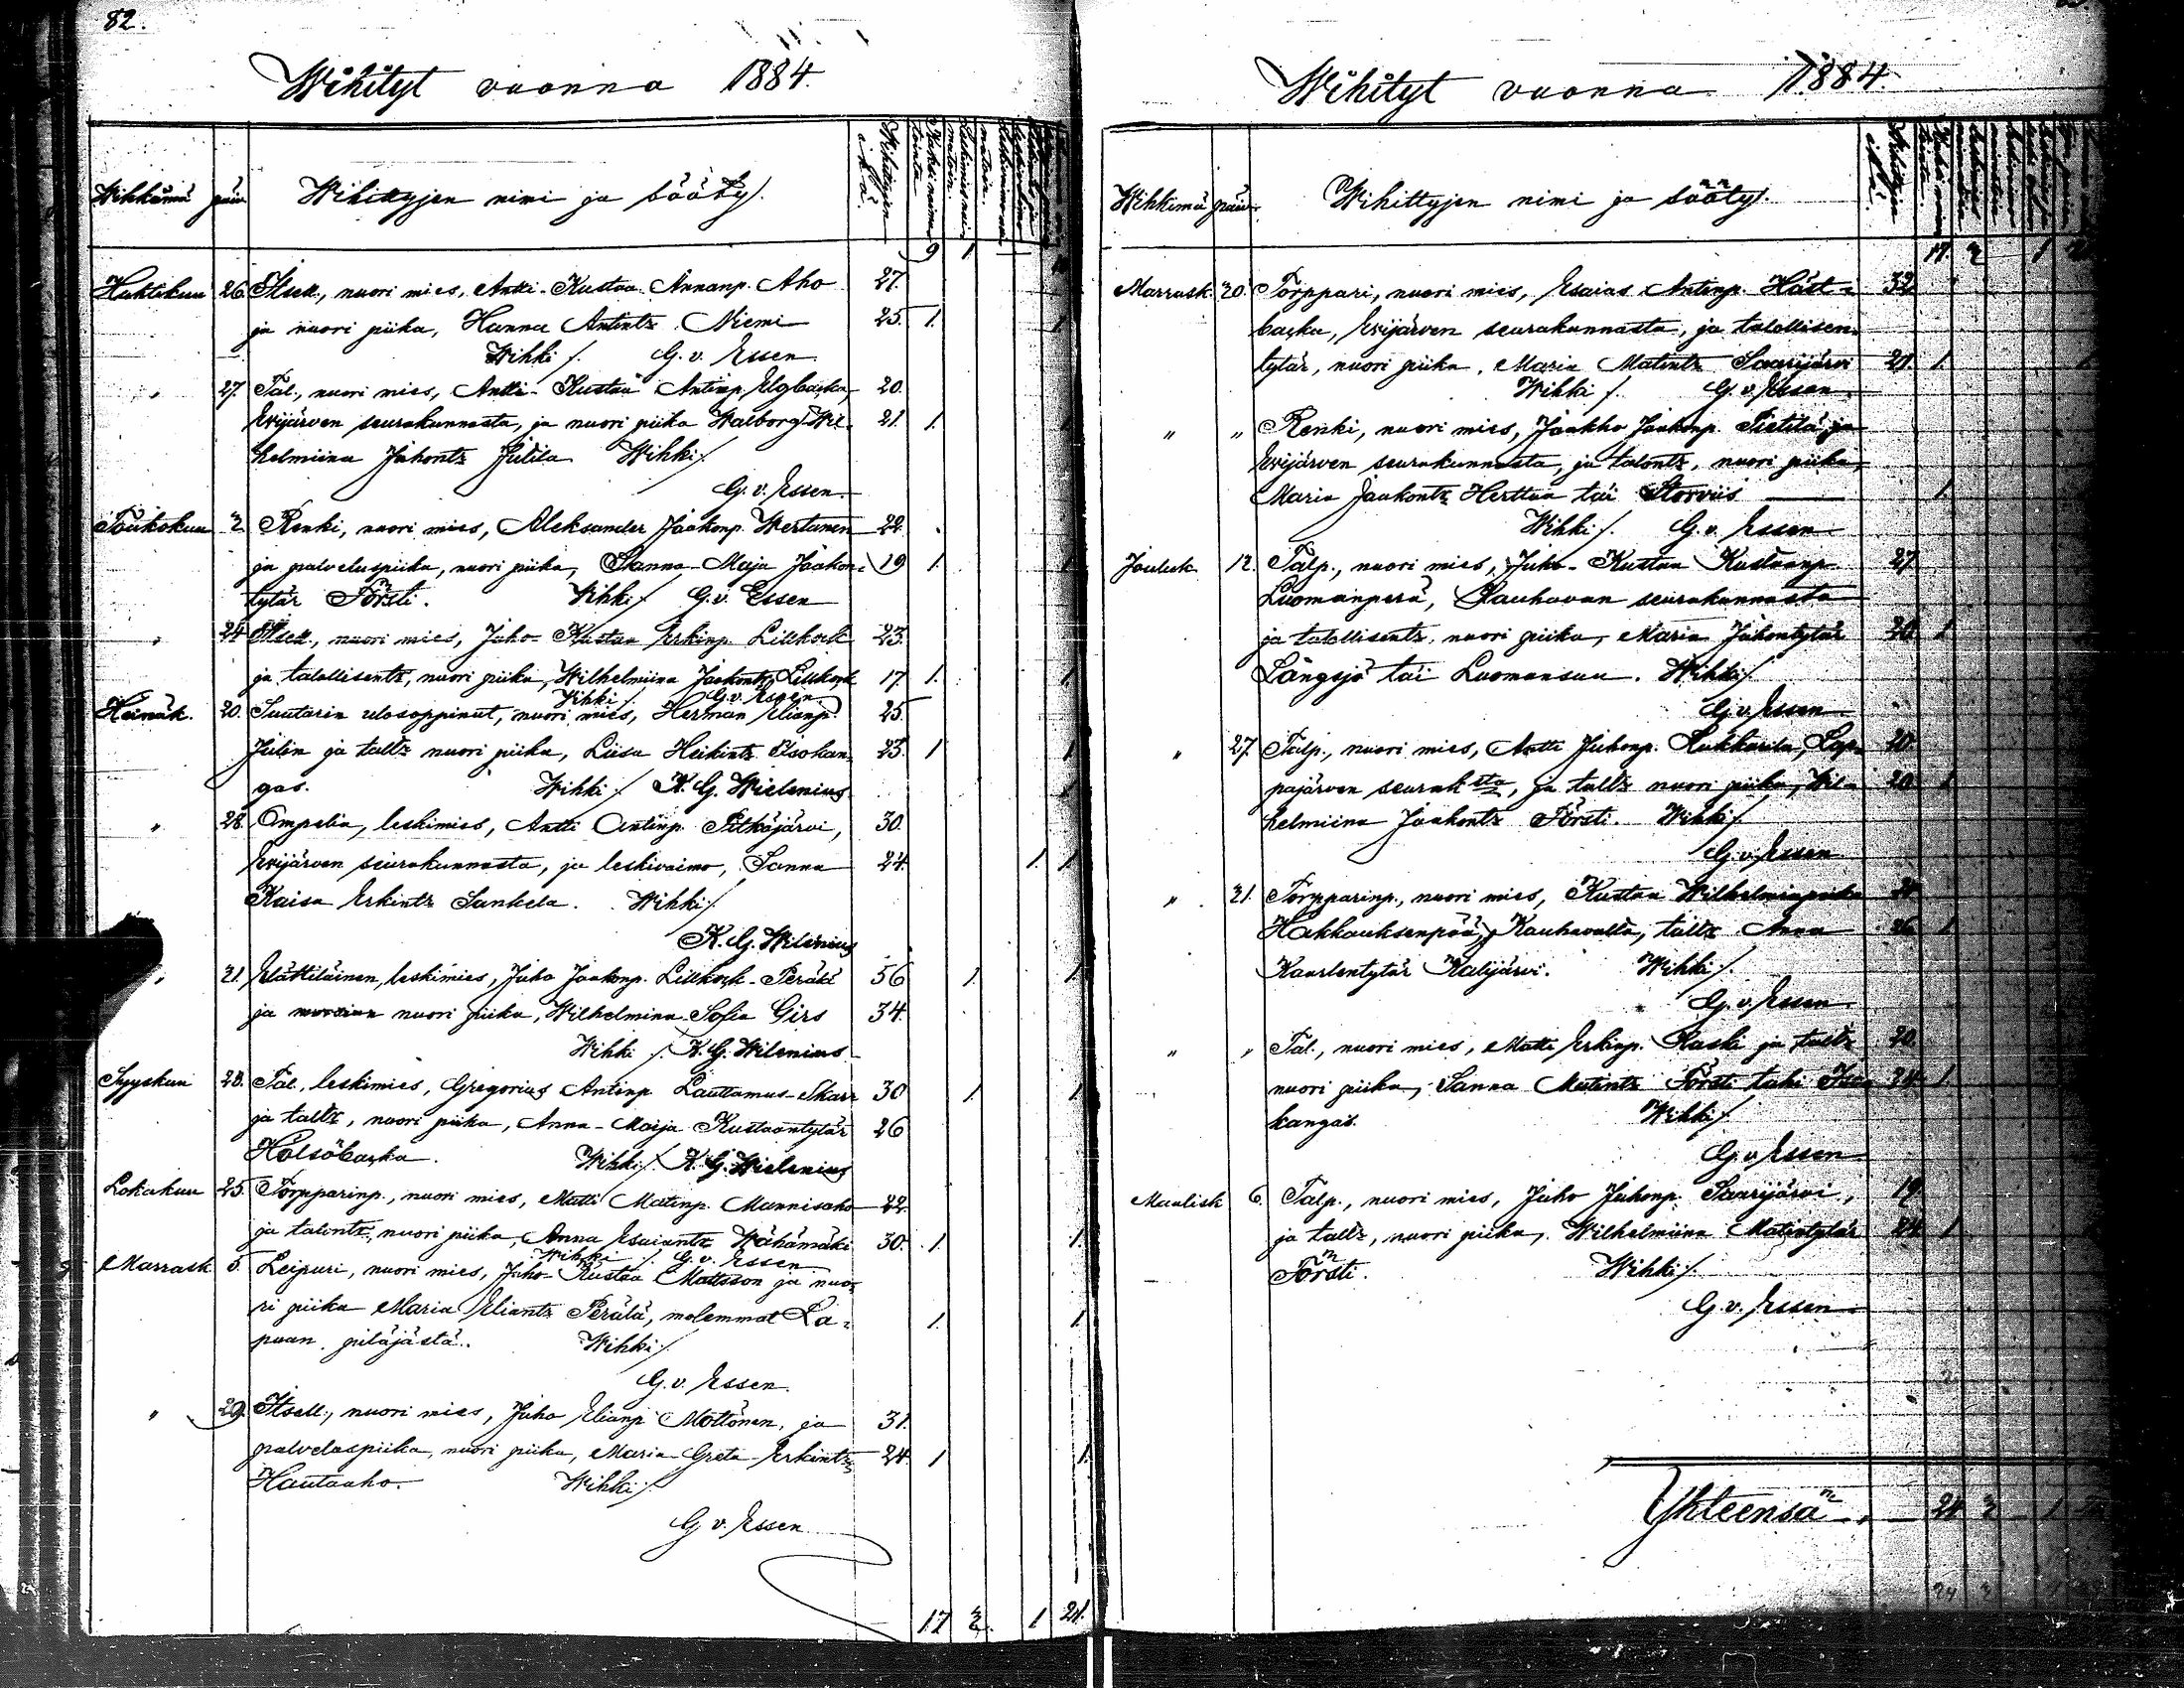 82.
Wihityt vuonna 1884.
Wihkimä päiv.
Wihittyjen nimi ja sääty.
Wihittyjen ikä.
9 1
Huhtikuu 26. Itsell., nuori mies, Antti-Kustaa Annanp. Aho 27.
ja nuori piika, Hanna Antintr. Niemi 25. 1. 1
Wihki /. G. v. Essen.
" 27. Tal., nuori mies, Antti-Kustaa Antinp. Elgbacka, 20.
Evijärven seurakunnasta, ja nuori piika Walborg Wil- 21. 1. 1
helmiina Juhontr. Jutila Wihki /.
G. v. Essen.
Toukokuu 2. Renki, nuori mies, Aleksander Jaakonp. Wertanen 22.
ja palveluspiika, nuori piika, Sanna-Maja Jaakon- 19 1. 1
tytär Försti. Wihki /. G. v. Essen
" 24. Itsell., nuori mies, Juho-Kustaa Erkinp. Lillkock 23.
ja talollisentr., nuori piika, Wilhelmiina Jaakontr. Lillkock 17. 1. 1.
Wihki /. G. v. Essen
Heinäk. 20. Suutarin ulosoppinut, nuori mies, Herman Elianp. 25.
Julin ja talltr. nuori piika, Liisa Heikintr. Isokan- 23. 1 1
gas. Wihki /. K. G. Wielenius 1
" 28. Ompelia, leskimies, Antti Antinp. Pitkäjärvi, 30.
Evijärven seurakunnasta, ja leskivaimo, Sanna 24. 1. 1
Kaisa Erkintr. Sankela. Wihki /.
K. G. Wilenius
" 31. Elättiläinen, leskimies, Juho Jaakonp. Lillkock-Perälä 56 1. 1
ja nuori piika, Wilhelmina Sofia Girs 34.
Wihki /. K. G. Wilenius
Syyskuu 28. Tal., leskimies, Gregorius Antinp. Lauttamus-Skarr 30 1. 1
ja talltr., nuori piika, Anna-Maija Kustaantytär 26
Holsöbacka. Wihki /. K. G. Wielenius
Lokakuu 25. Torpparinp., nuori mies, Matti Matinp. Mannisaho 22.
ja talontr., nuori piika, Anna Esaiantr. Wähämäki 30. 1. 1.
Wihki /. G. v. Essen
Marrask. 5. Leipuri, nuori mies, Juho-Kustaa Mattsson ja nuo-
ri piika Maria Eliantr. Perälä, molemmat La- 1. 1.
puan pitäjästä. Wihki /.
G. v. Essen.
" 29. Itsell., nuori mies, Juho Elianp. Möttönen, ja 31.
palveluspiika, nuori piika, Maria Greta Erkintr. 24. 1 1.
Hautaaho. Wihki /.
G. v. Essen
17 3. 1 21.
Wihityt vuonna 1884.
Wihkimä päiv.
Wihittyjen nimi ja sääty.
17. 3 1
Marrask. 30. Torppari, nuori mies, Esaias Antinp. Häst- 32
backa, Evijärven seurakunnasta, ja talollisen-
tytär, nuori piika, Maria Matintr. Saarijärvi 21. 1. 1.
Wihki /. G. v. Essen.
" " Renki, nuori mies, Jaakko Jaakonp. Pietilä, ja
Evijärven seurakunnasta, ja talontr., nuori piika,
Maria Jaakontr. Herttua tai Storviis 1.
Wihki /. G. v. Essen
Jouluk. 12. Talp., nuori mies, Juho-Kustaa Kustaanp. 27.
Luomanperä, Kauhavan seurakunnasta
ja talollisentr., nuori piika, Maria Juhontytär 20. 1
Långsjö tai Luomansuu. Wihki /.
G. v. Essen
" 27. Talp., nuori mies, Antti Juhonp. Hukkarila, Lap- 20.
pajärven seurak:sta, ja talltr. nuori piika, Wil- 20. 1
helmiina Jaakontr. Försti. Wihki /.
G. v. Essen
" 31. Torpparinp., nuori mies, Kustaa Wilhelminpoika
Hakkauksenpää, Kauhavalta, talltr. Anna 26. 1
Kaarlentytär Kalijärvi. Wihki /.
G. v. Essen
" " Tal., nuori mies, Matti Erkinp. Kaski ja talltr. 20.
nuori piika, Sanna Matintr. Försti taki Iso- 24. 1.
kangas. Wihki /.
G. v. Essen
Maalisk. 6. Talp., nuori mies, Juho Juhonp. Saarijärvi, 19.
ja talltr., nuori piika, Wilhelmiina Matintytär 24. 1
Försti. Wihki /.
G. v. Essen
Yhteensä 24. 3 1
24 3 1